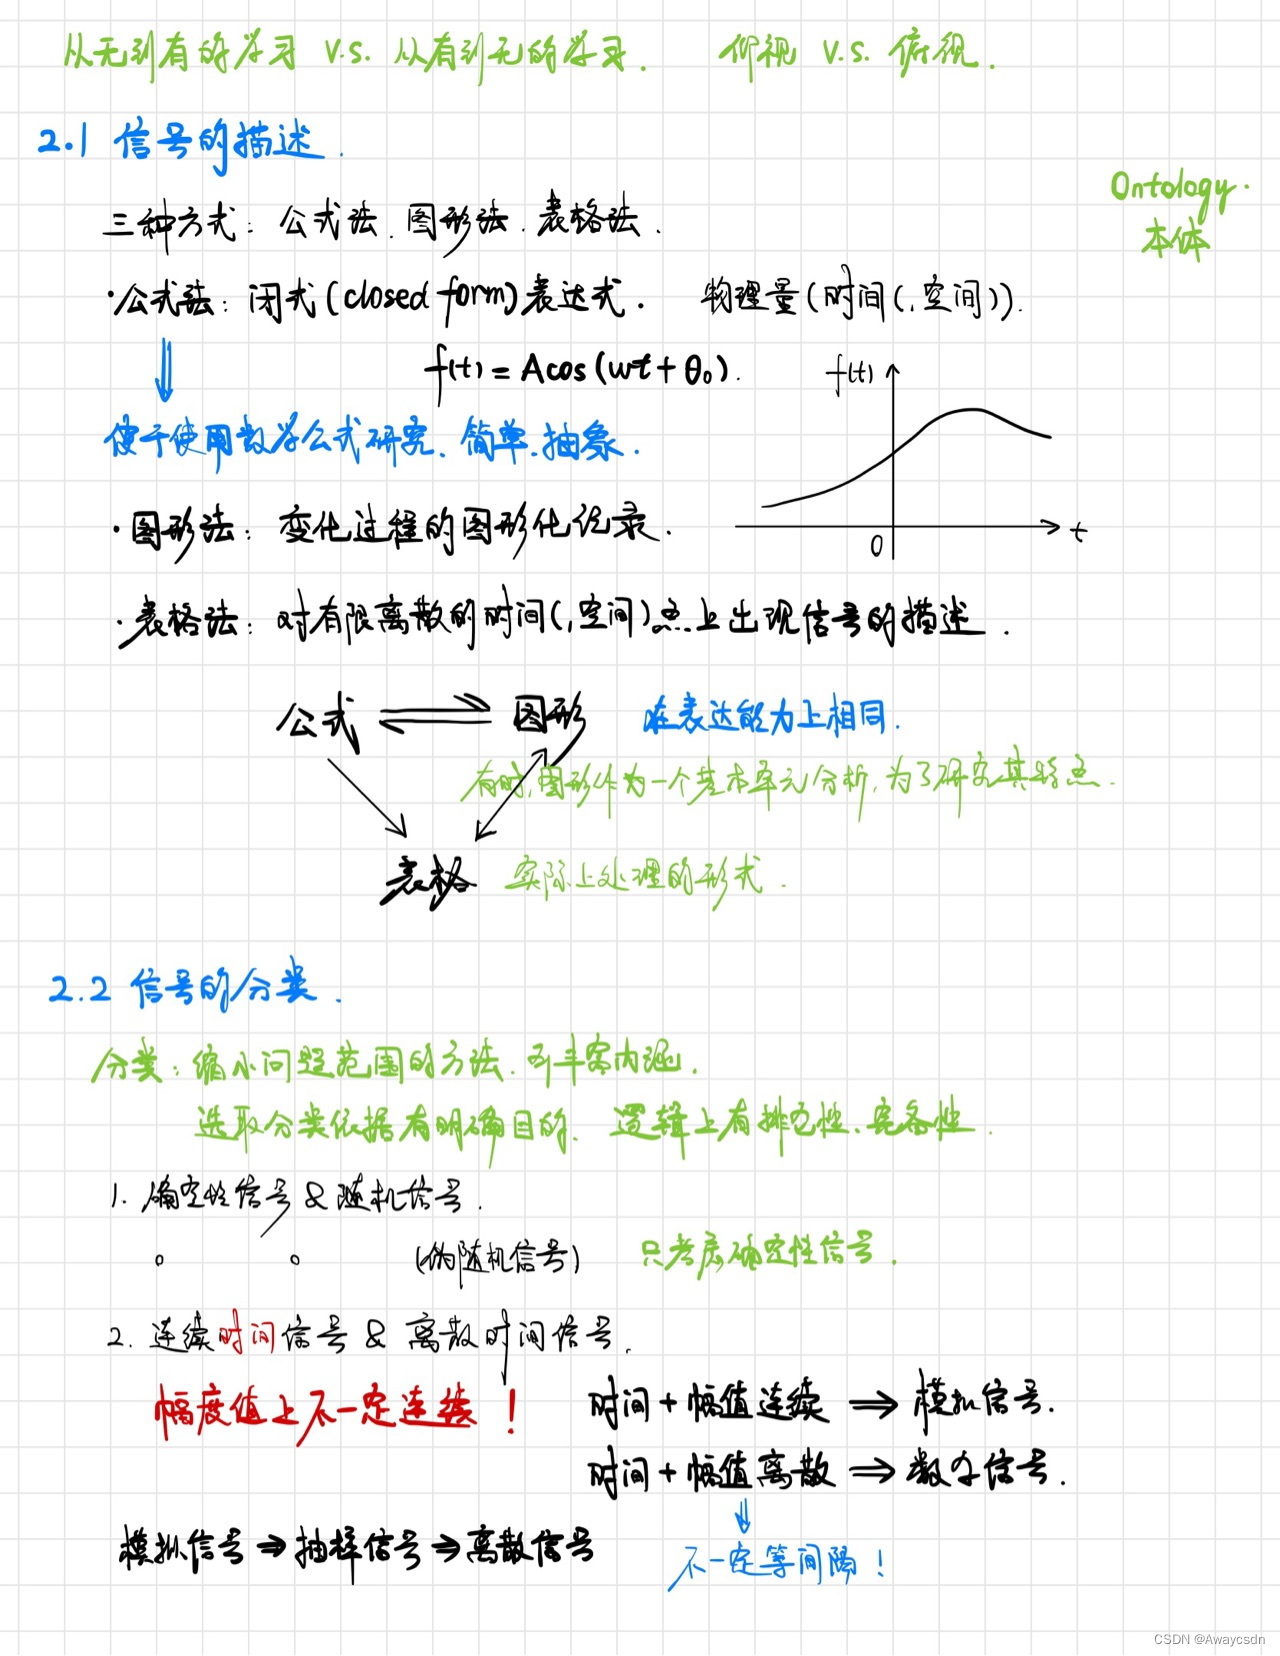 从无到有的学习 v.s. 从有到无的学习. 仰视 v.s. 俯视.
2.1 信号的描述.
Ontology.
本体
三种方式: 公式法. 图形法. 表格法.
·公式法: 闭式(closed form)表达式. 物理量(时间(,空间)).
f(t) = Acos(wt + θ₀).
f(t)
便于使用数学公式研究. 简单. 抽象.
·图形法: 变化过程的图形化记录.
0
t
·表格法: 对有限离散的时间(,空间)点上出现信号的描述.
公式 图形 在表达能力上相同.
有时,图形作为一个基本单元分析,为了研究其特点.
表格 实际上处理的形式.
2.2 信号的分类.
分类: 缩小问题范围的方法. 可丰富内涵.
选取分类依据有明确目的. 逻辑上有排它性、完备性.
1. 确定性信号 & 随机信号.
(伪随机信号) 只考虑确定性信号.
2. 连续时间信号 & 离散时间信号.
幅度值上不一定连续!
时间 + 幅值连续 ⇒ 模拟信号.
时间 + 幅值离散 ⇒ 数字信号.
模拟信号 ⇒ 抽样信号 ⇒ 离散信号
不一定等间隔!
CSDN @Awaycsdn